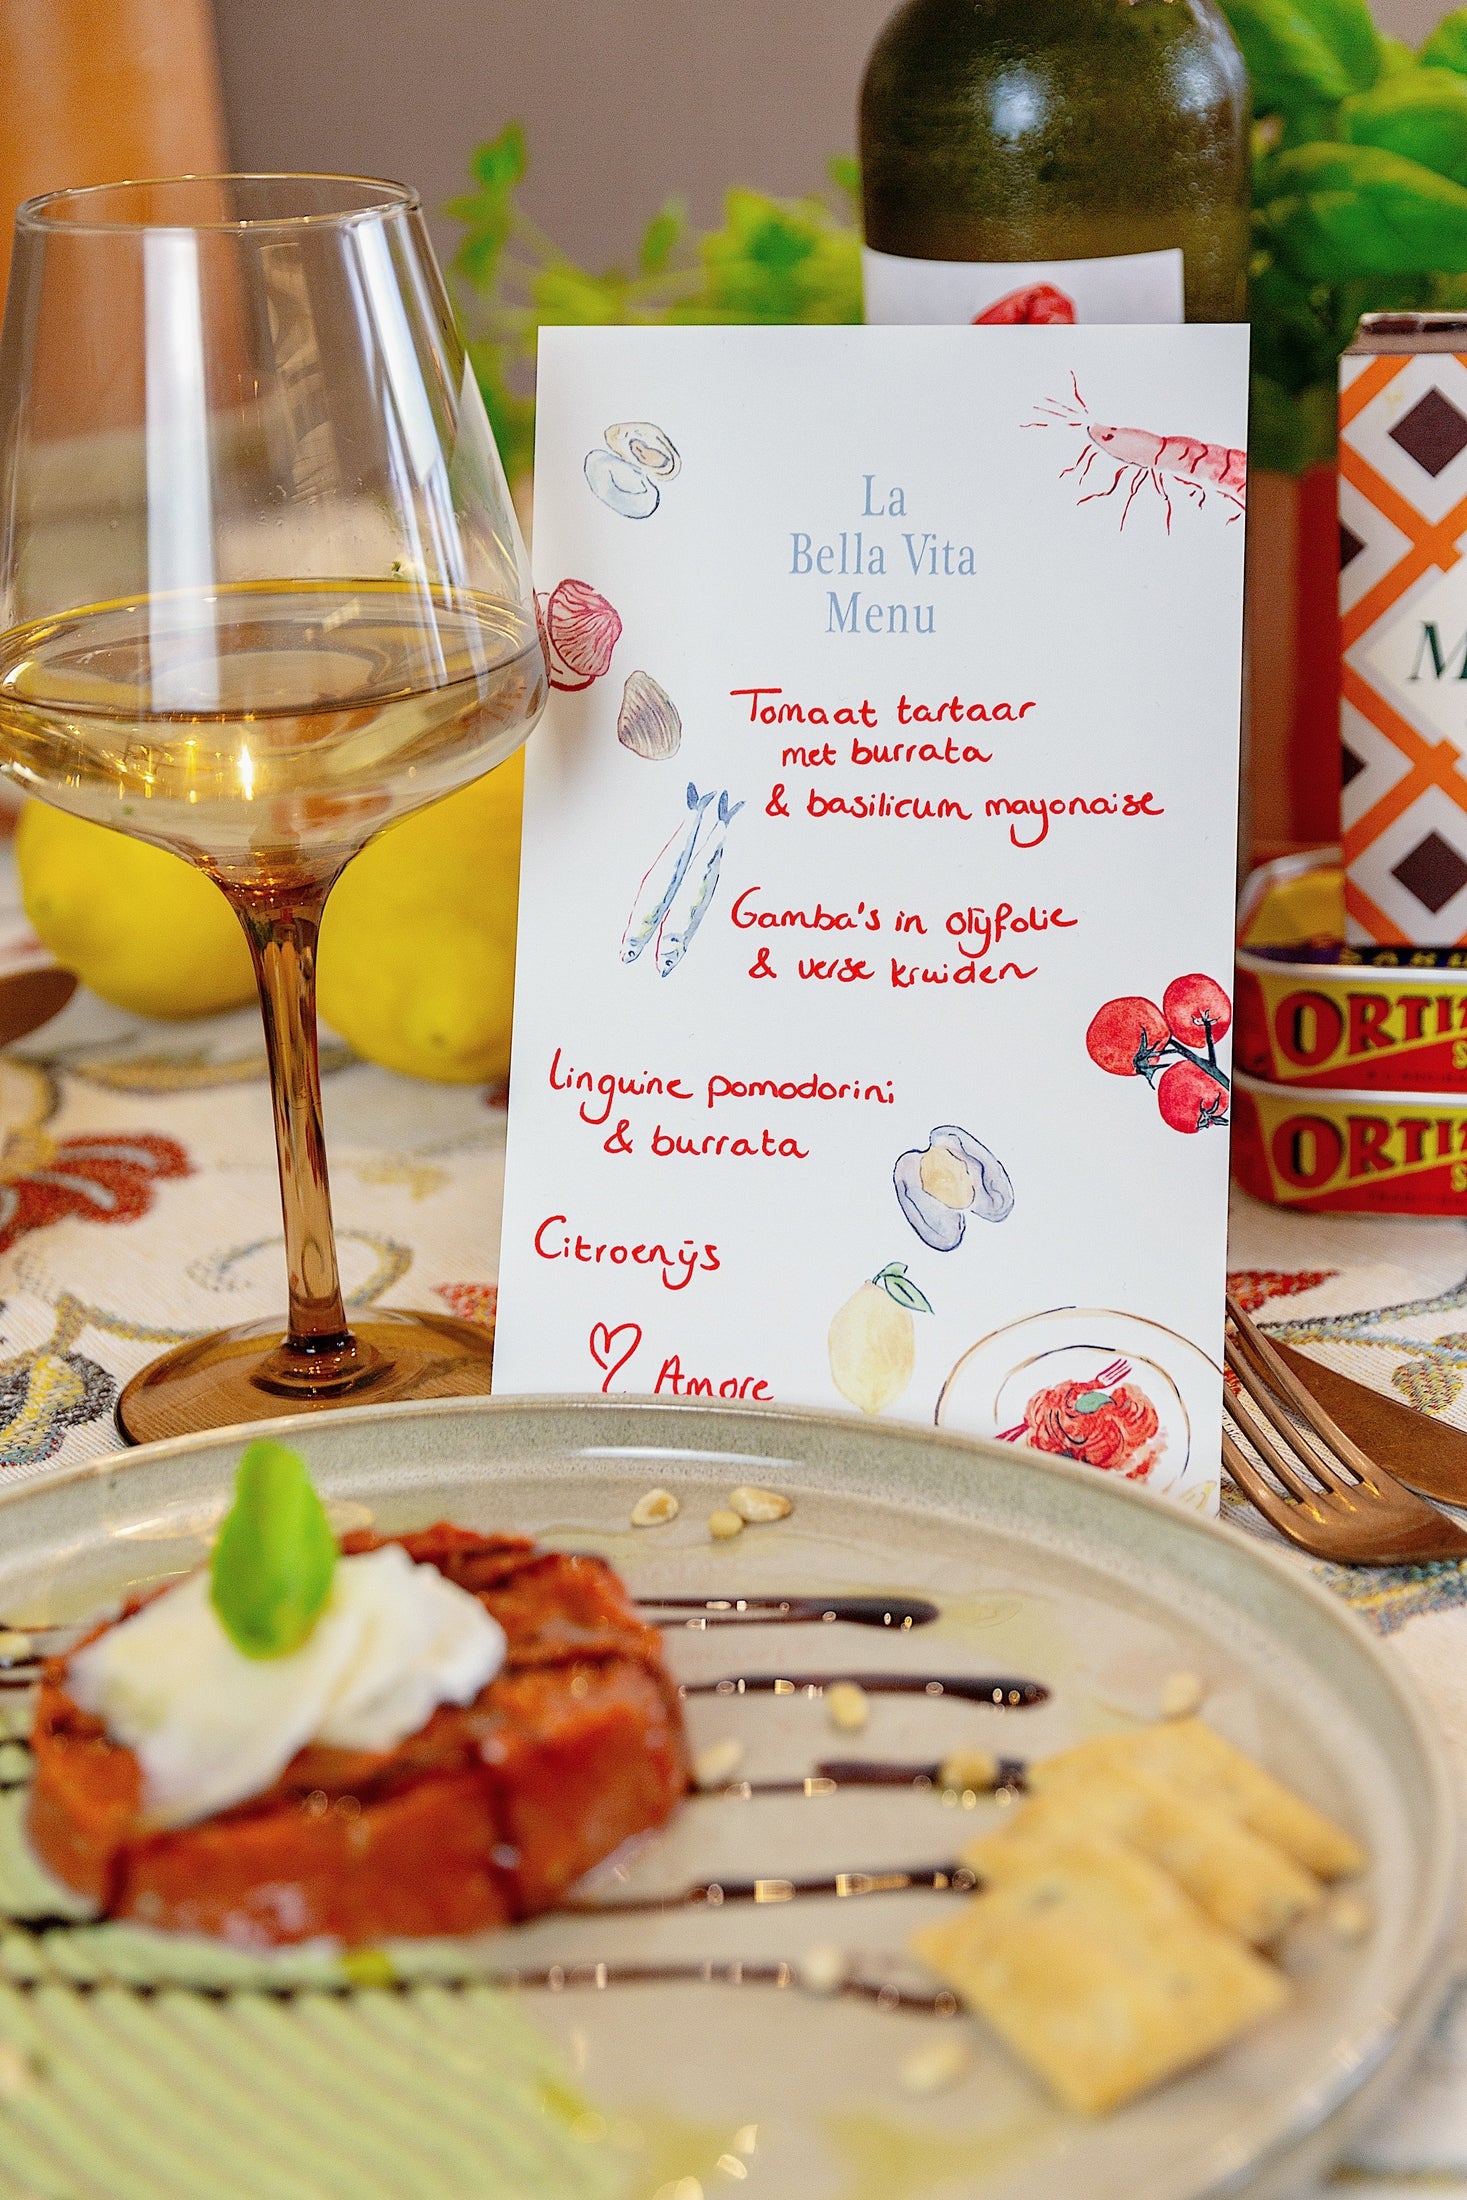 La
Bella Vita
Menu
Tomaat tartaar
met burrata
& basilicum mayonaise
Gamba's in olijfolie
& verse kruiden
Linguine pomodorini
& burrata
Citroenijs
Amore